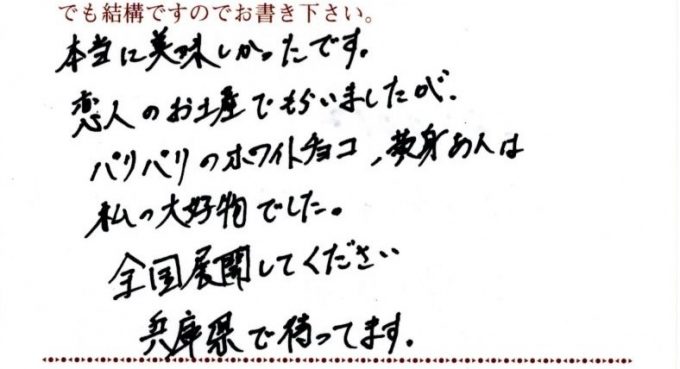 でも結構ですのでお書き下さい。
本当に美味しかったです。
恋人のお土産でもらいましたが、
パリパリのホワイトチョコ、黄身あんは
私の大好物でした。
全国展開してください
兵庫県で待ってます。